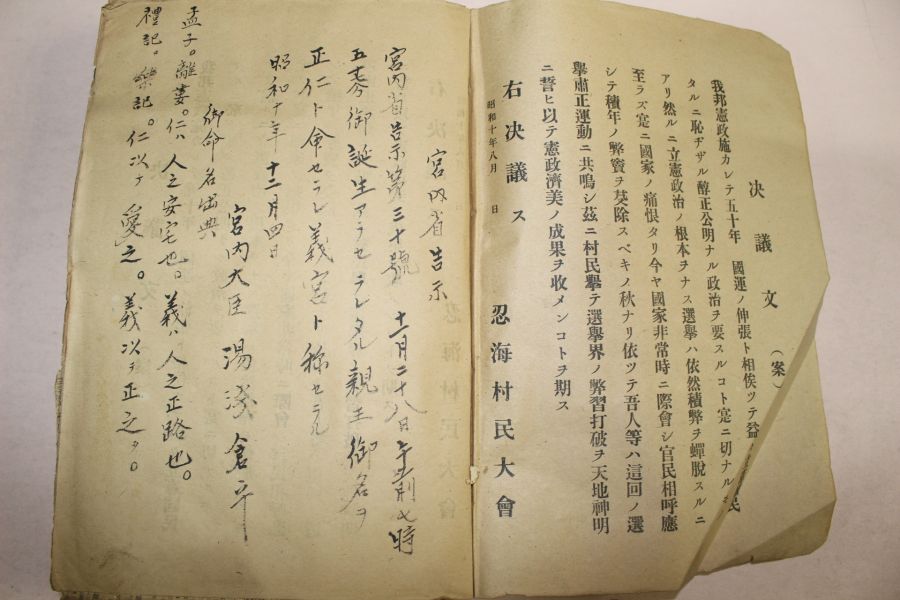 決議文(案)
我邦憲政施カレテ五十年 國運ノ伸張ト相俟ツテ益
タルニ恥ヂザル醇正公明ナル政治ヲ要スルコト寔ニ切ナル
アリ然ルニ立憲政治ノ根本ヲナス選擧ハ依然積弊ヲ蟬脫スルニ
至ラズ寔ニ國家ノ痛恨タリ今ヤ國家非常時ニ際會シ官民相呼應
シテ積年ノ弊竇ヲ芟除スベキノ秋ナリ依ツテ吾人等ハ這回ノ選
擧肅正運動ニ共鳴シ茲ニ村民擧テ選擧界ノ弊習打破ヲ天地神明
ニ誓ヒ以テ憲政濟美ノ成果ヲ收メンコトヲ期ス
右決議ス
昭和十年八月 日
忍海村民大會
宮內省告示
宮內省告示第三十號 十一月二十八日午前七時
五十七分御誕生アラセラレタル親王御名ヲ
正仁ト命セラレ義宮ト称セラル
昭和十年十二月四日
宮内大臣 湯淺倉平
御命名出典
孟子。離婁。仁ハ人之安宅也。義ハ人之正路也。
禮記。樂記。仁以テ愛之。義以テ正之ヲ。